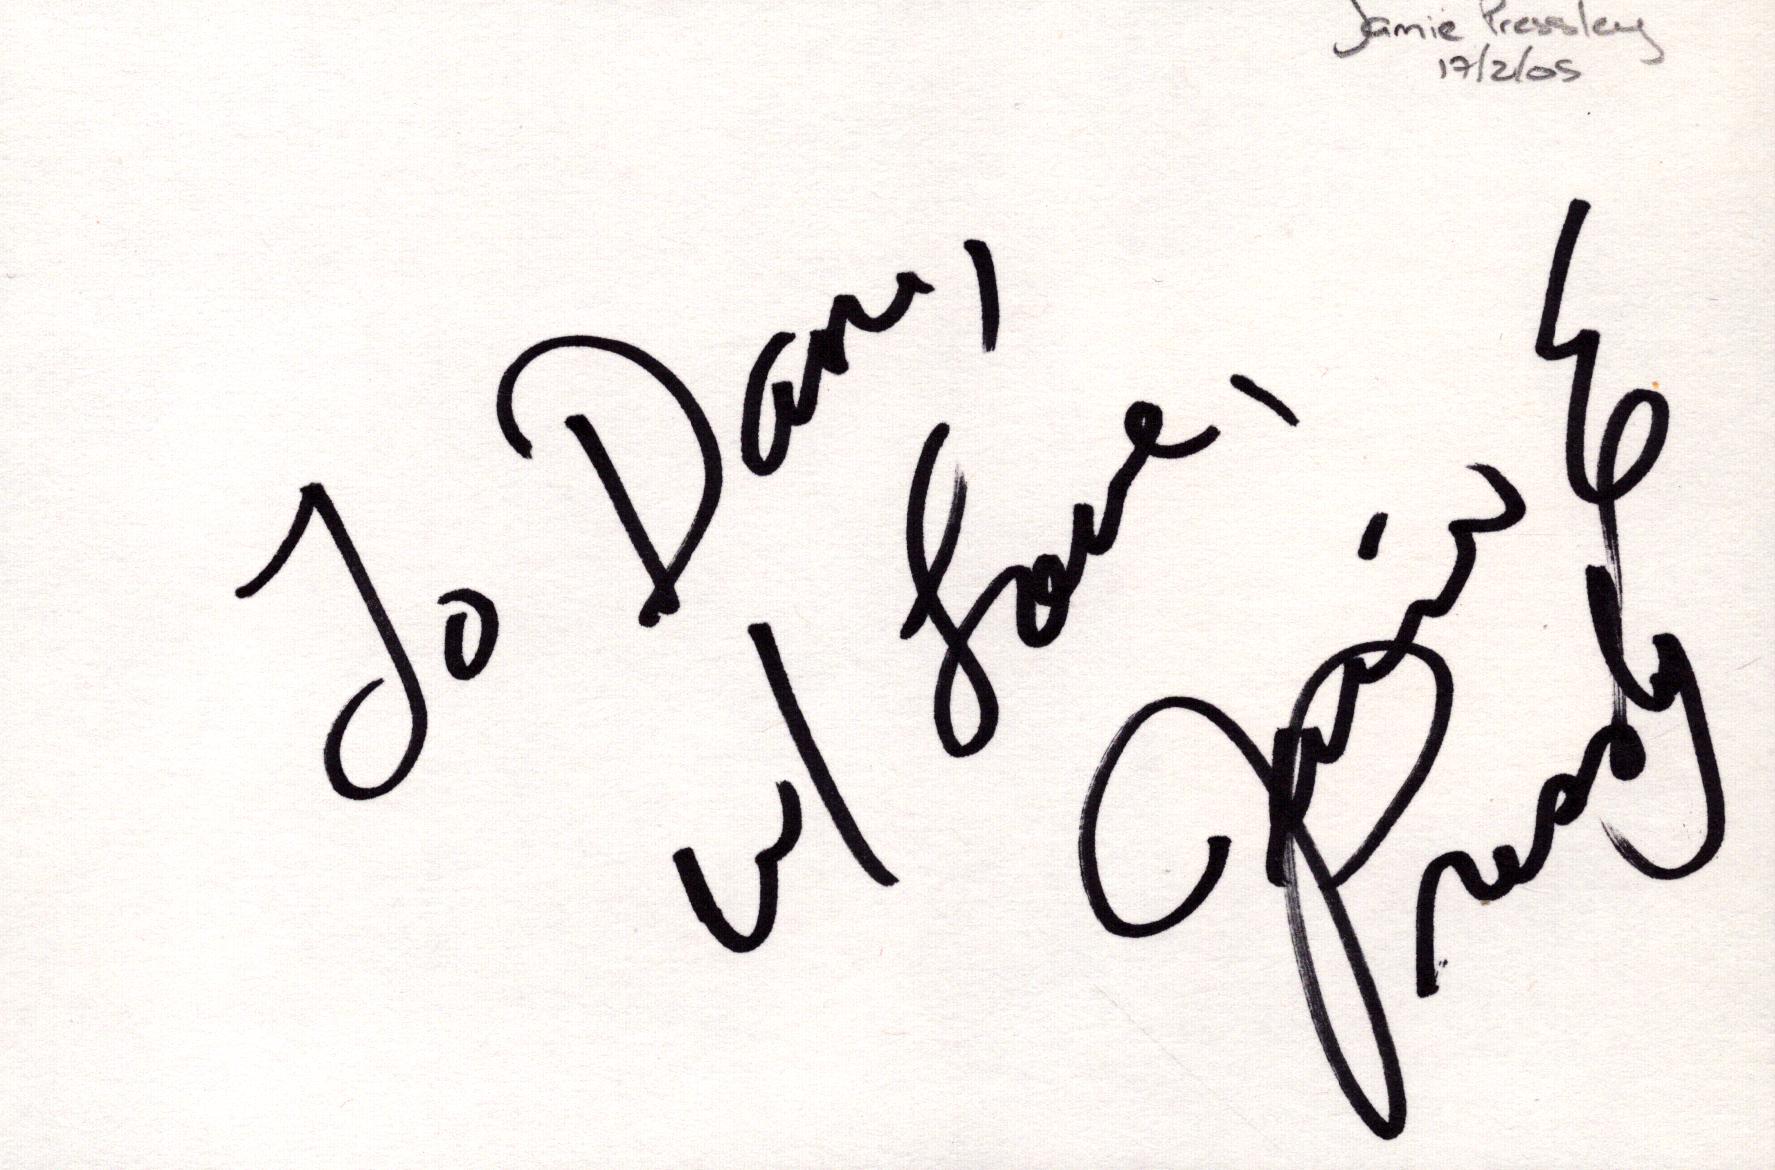 Jamie Pressley
17/2/05
To Dan,
w/ Love,
Jaime
Pressly